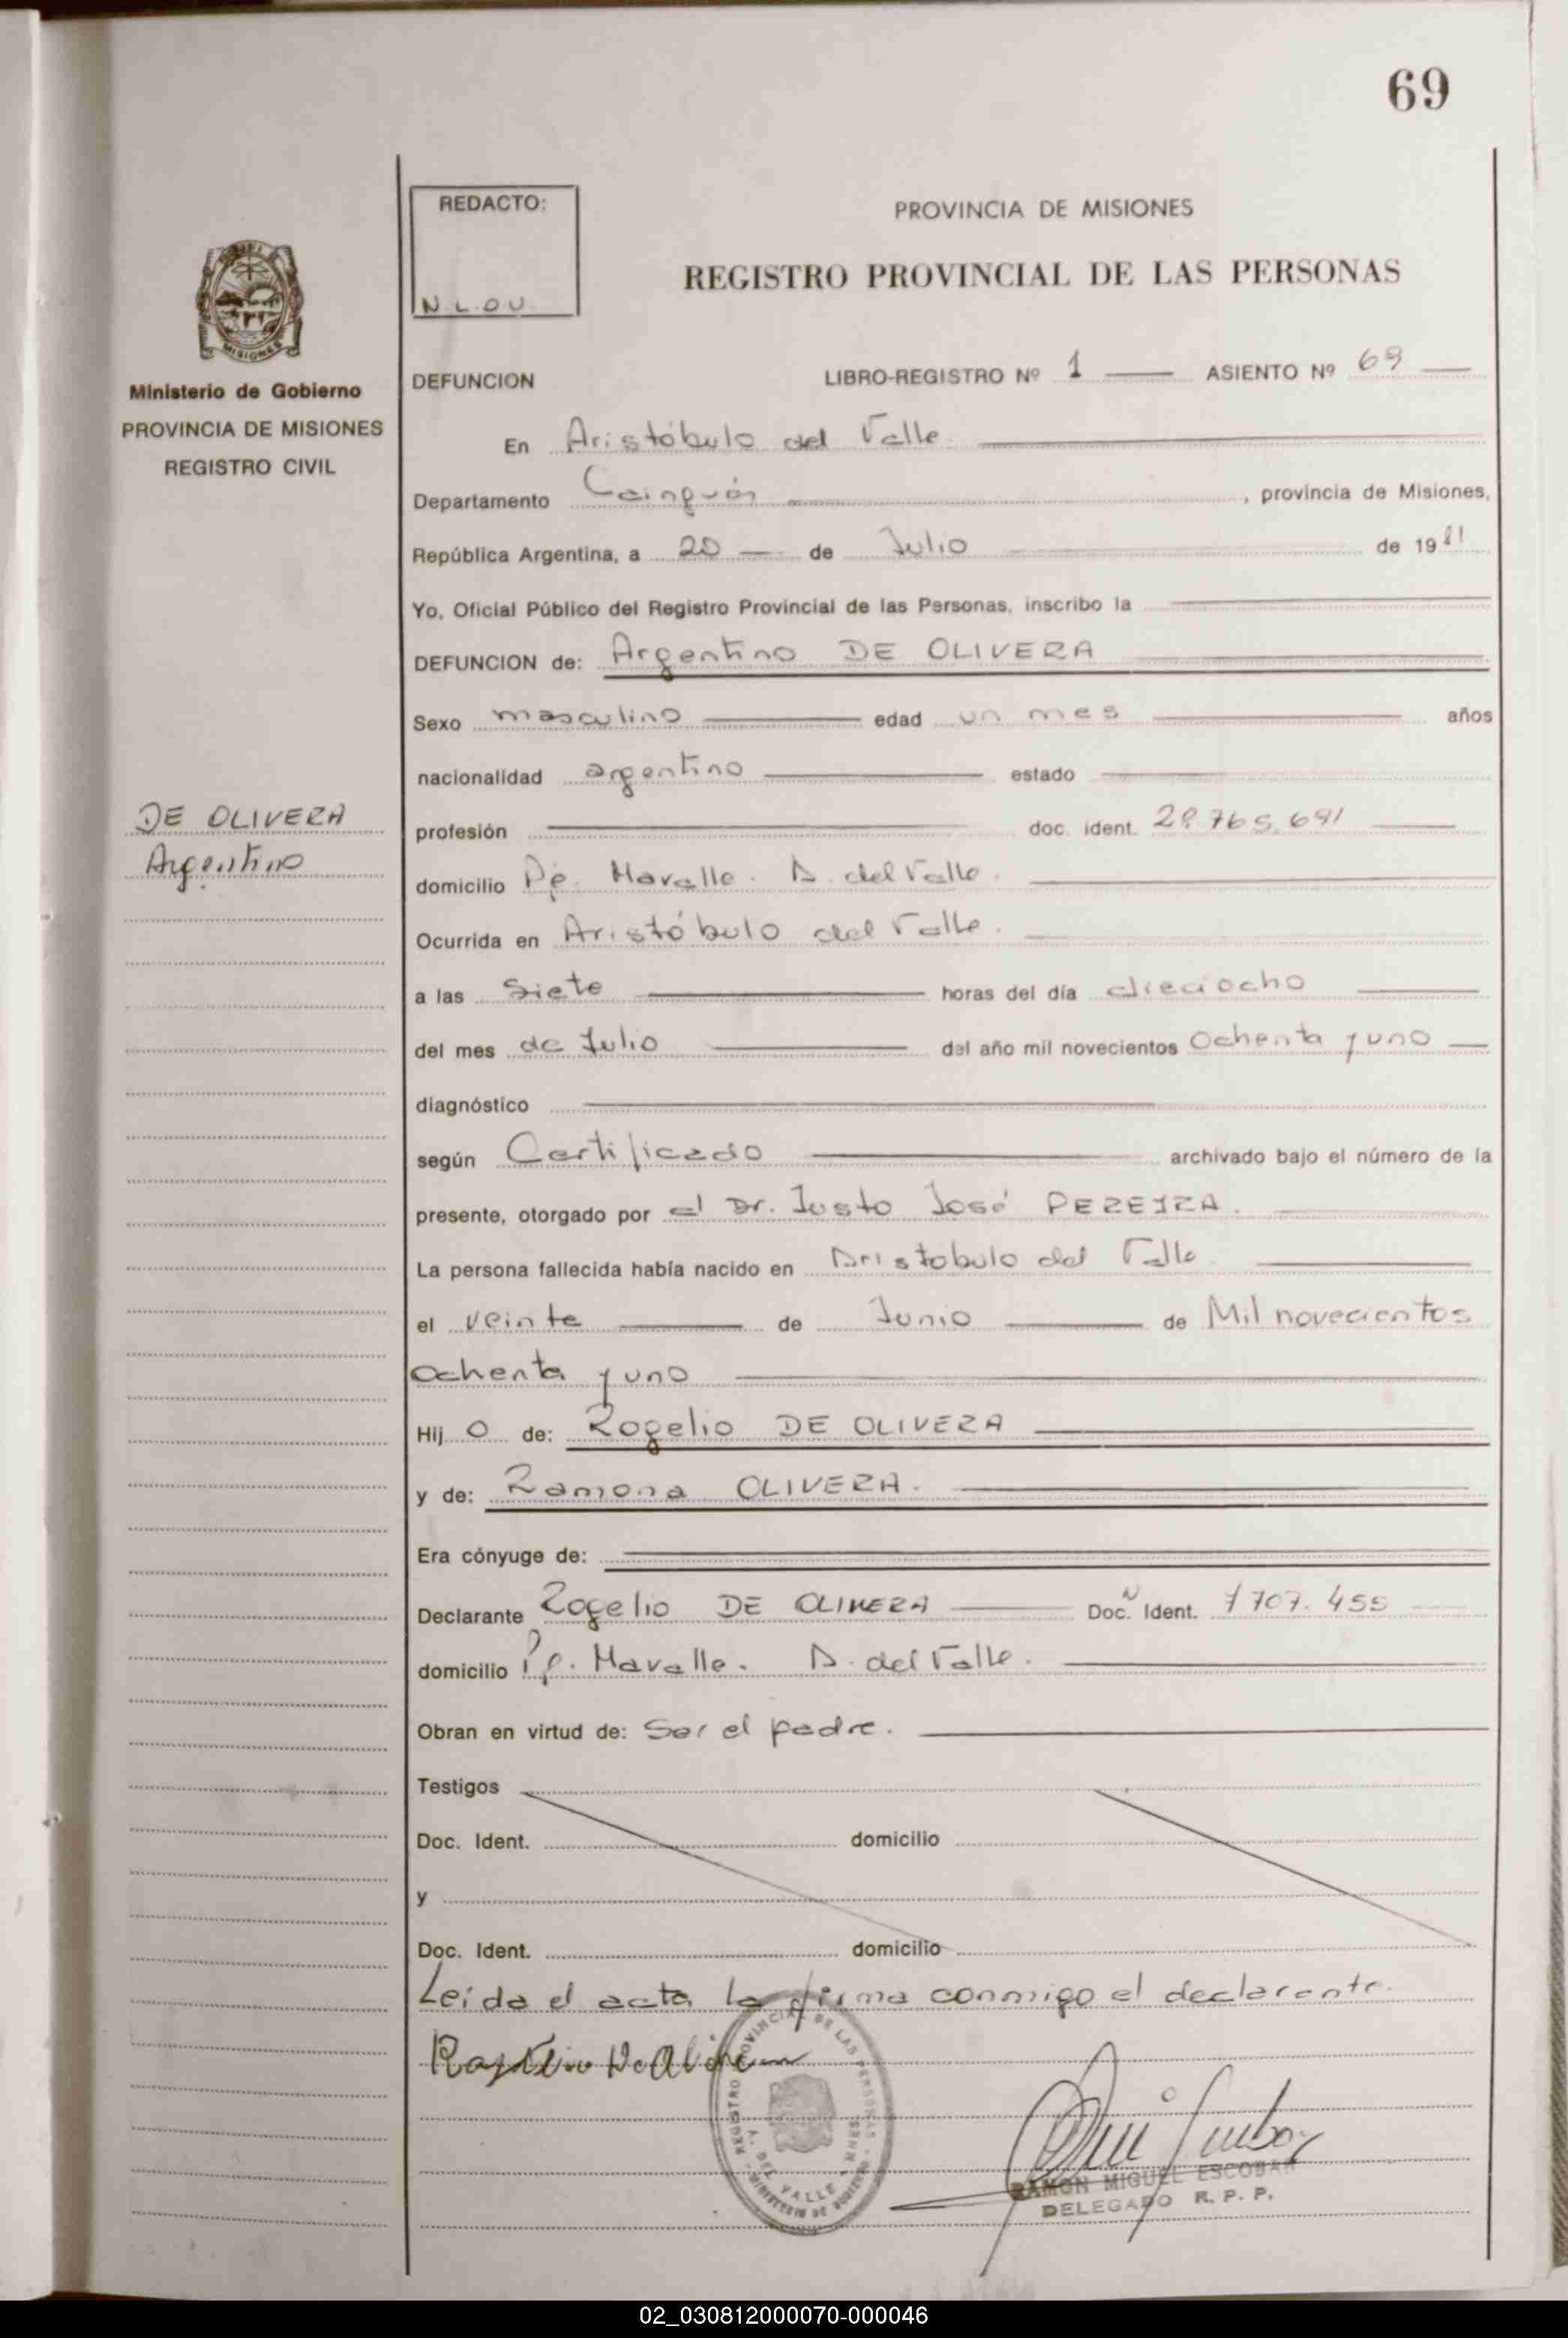 69
REDACTO:
N.L.O.U.
PROVINCIA DE MISIONES
REGISTRO PROVINCIAL DE LAS PERSONAS
MISIONES
Ministerio de Gobierno
PROVINCIA DE MISIONES
REGISTRO CIVIL
DEFUNCION LIBRO-REGISTRO Nº 1 ASIENTO Nº 69
En Aristóbulo del Valle
Departamento Cainguás, provincia de Misiones,
República Argentina, a 20 de Julio de 1981
Yo, Oficial Público del Registro Provincial de las Personas, inscribo la
DEFUNCION de: Argentino DE OLIVERA
Sexo masculino edad un mes años
nacionalidad argentino estado
DE OLIVERA
Argentino
profesión doc. ident. 28.765.691
domicilio Pje. Mavalle. A. del Valle.
Ocurrida en Aristóbulo del Valle.
a las Siete horas del día dieciocho
del mes de Julio del año mil novecientos Ochenta y uno
diagnóstico
según Certificado archivado bajo el número de la
presente, otorgado por el Dr. Justo José PEREIRA.
La persona fallecida había nacido en Aristóbulo del Valle.
el veinte de Junio de Mil novecientos
Ochenta y uno
Hijo de: Rogelio DE OLIVERA
y de: Ramona OLIVERA.
Era cónyuge de:
Declarante Rogelio DE OLIVERA Doc. Ident. 7707.455
domicilio Pje. Mavalle. A. del Valle.
Obran en virtud de: Ser el padre.
Testigos
Doc. Ident. domicilio
y
Doc. Ident. domicilio
Leída el acta la firma conmigo el declarante.
REGISTRO PROVINCIAL DE LAS PERSONAS
A. DEL VALLE - MNES.
MINISTERIO DE GOBIERNO
RAMON MIGUEL ESCOBAR
DELEGADO R. P. P.
02_030812000070-000046